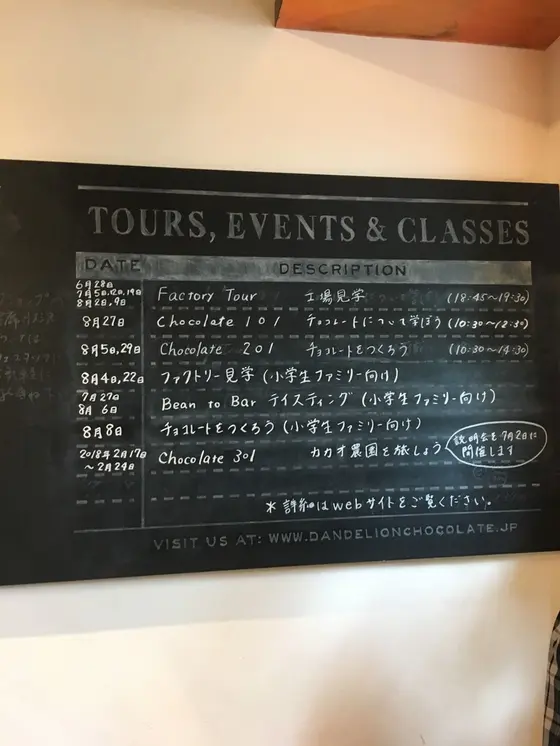 TOURS, EVENTS & CLASSES
DATE DESCRIPTION
6月28日
7月5日,12日,19日
8月2日,9日
Factory Tour 工場見学 (18:45～19:30)
8月27日 Chocolate 101 チョコレートについて学ぼう (10:30～12:30)
8月5日,29日 Chocolate 201 チョコレートをつくろう (10:30～14:30)
8月4日,22日 ファクトリー見学 (小学生ファミリー向け)
7月27日
8月6日
Bean to Bar テイスティング (小学生ファミリー向け)
8月8日 チョコレートをつくろう (小学生ファミリー向け)
2018年2月17日
～2月24日
Chocolate 301 カカオ農園を旅しよう
説明会を7月2日に
開催します
* 詳細はwebサイトをご覧ください。
VISIT US AT: WWW.DANDELIONCHOCOLATE.JP